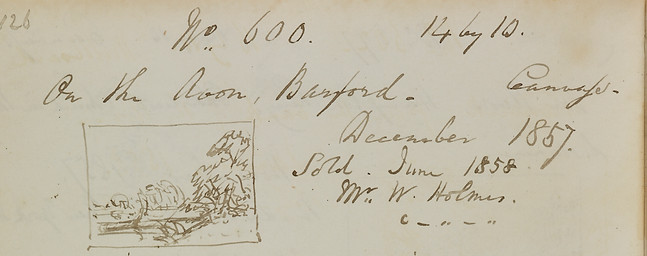 126
No. 600. 14 by 10.
On the Avon, Barford. Canvass.
December 1857.
Sold. June 1858.
Mr. W. Holmes.
c - " - "